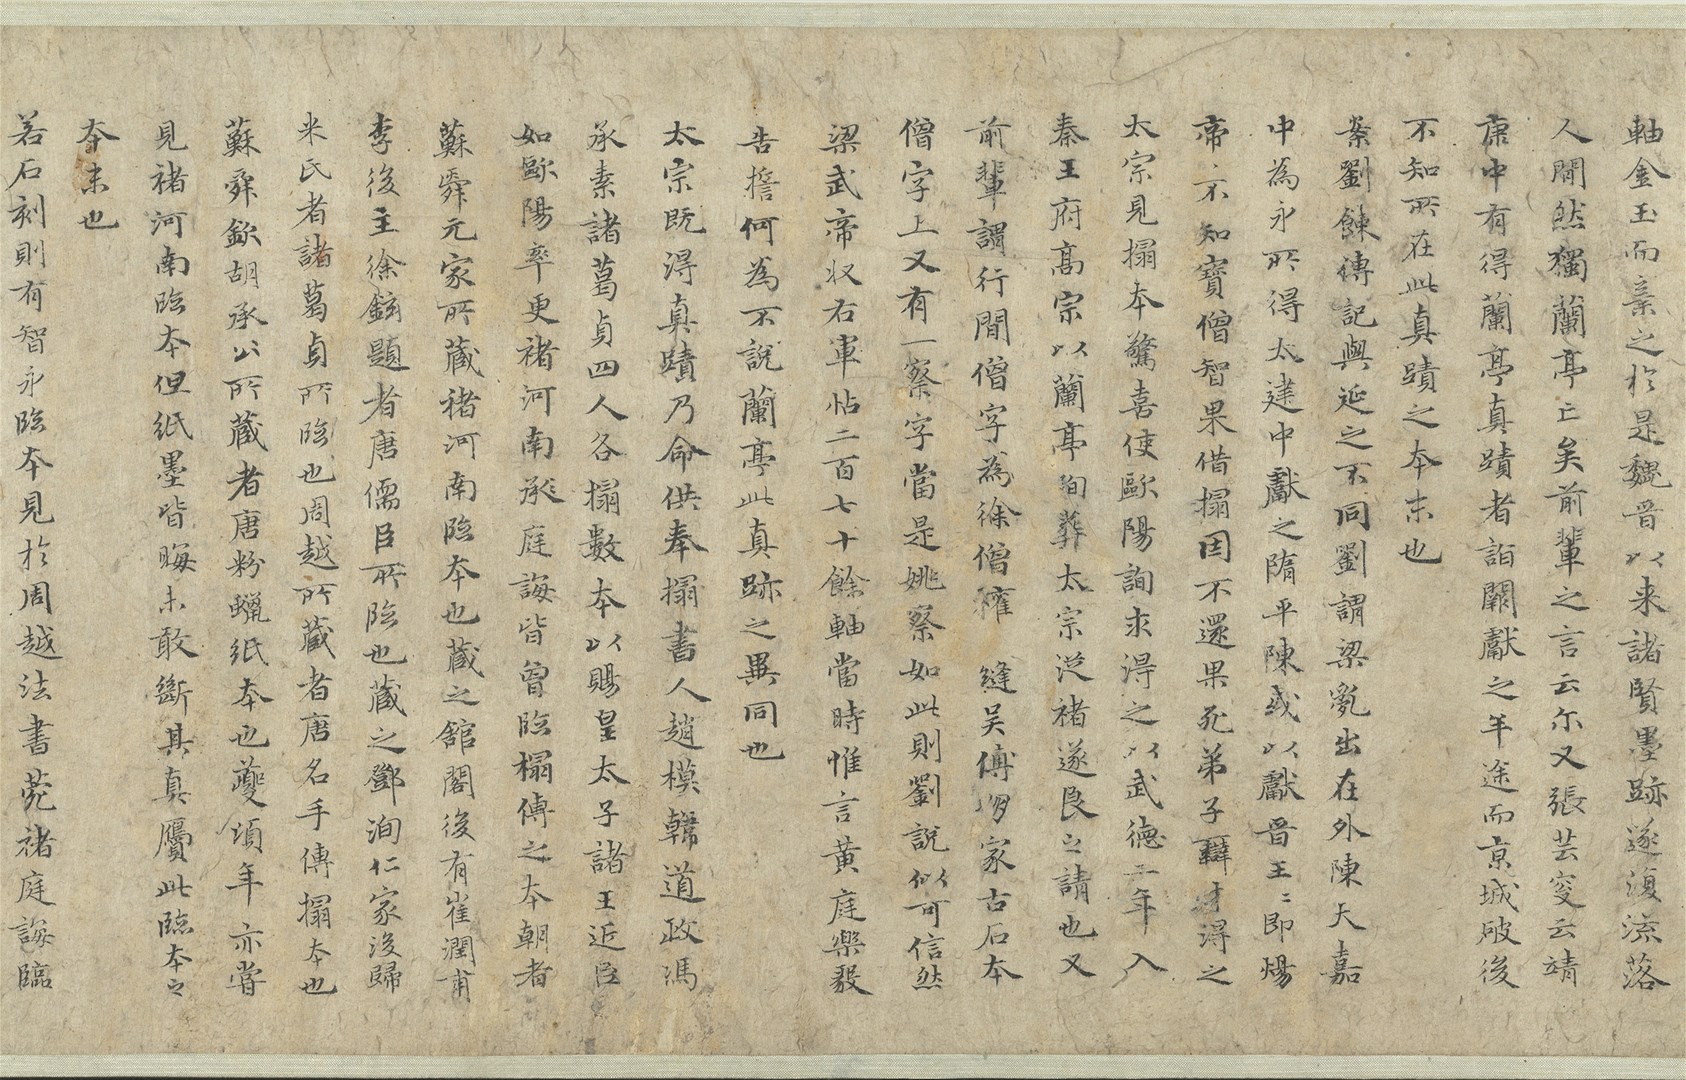 軸金玉而棄之於是魏晉以来諸賢墨跡遂復流落
人間然獨蘭亭亡矣前輩之言云尓又張芸叟云靖
康中有得蘭亭真蹟者詣闕獻之半途而京城破後
不知所在此真蹟之本末也
案劉餗傳記與延之不同劉謂梁亂出在外陳天嘉
中為永所得太建中獻之隋平陳或以獻晉王〻即煬
帝不知寶僧智果借搨因不還果死弟子辯才得之
太宗見搨本驚喜使歐陽詢求得之以武德二年入
秦王府髙宗以蘭亭殉葬太宗從褚遂良之請也又
前輩謂行間僧字為徐僧權 縫吴傅朋家古石本
僧字上又有一察字當是姚察如此則劉說似可信然
梁武帝収右軍帖二百七十餘軸當時惟言黄庭樂毅
告誓何為不說蘭亭此真跡之異同也
太宗既得真蹟乃命供奉搨書人趙模韓道政馮
承素諸葛貞四人各搨數本以賜皇太子諸王近臣
如歐陽率更褚河南承庭誨皆曾臨搨傳之本朝者
蘇舜元家所蔵褚河南臨本也蔵之舘閣後有崔潤甫
李後主徐鉉題者唐儒臣所臨也蔵之鄧洵仁家後歸
米氏者諸葛貞所臨也周越所蔵者唐名手傳搨本也
蘇舜欽胡承公所蔵者唐粉蠟紙本也夔頃年亦嘗
見褚河南臨本但紙墨皆晦未敢斷其真贗此臨本之
本末也
若石刻則有智永臨本見於周越法書苑褚庭誨臨